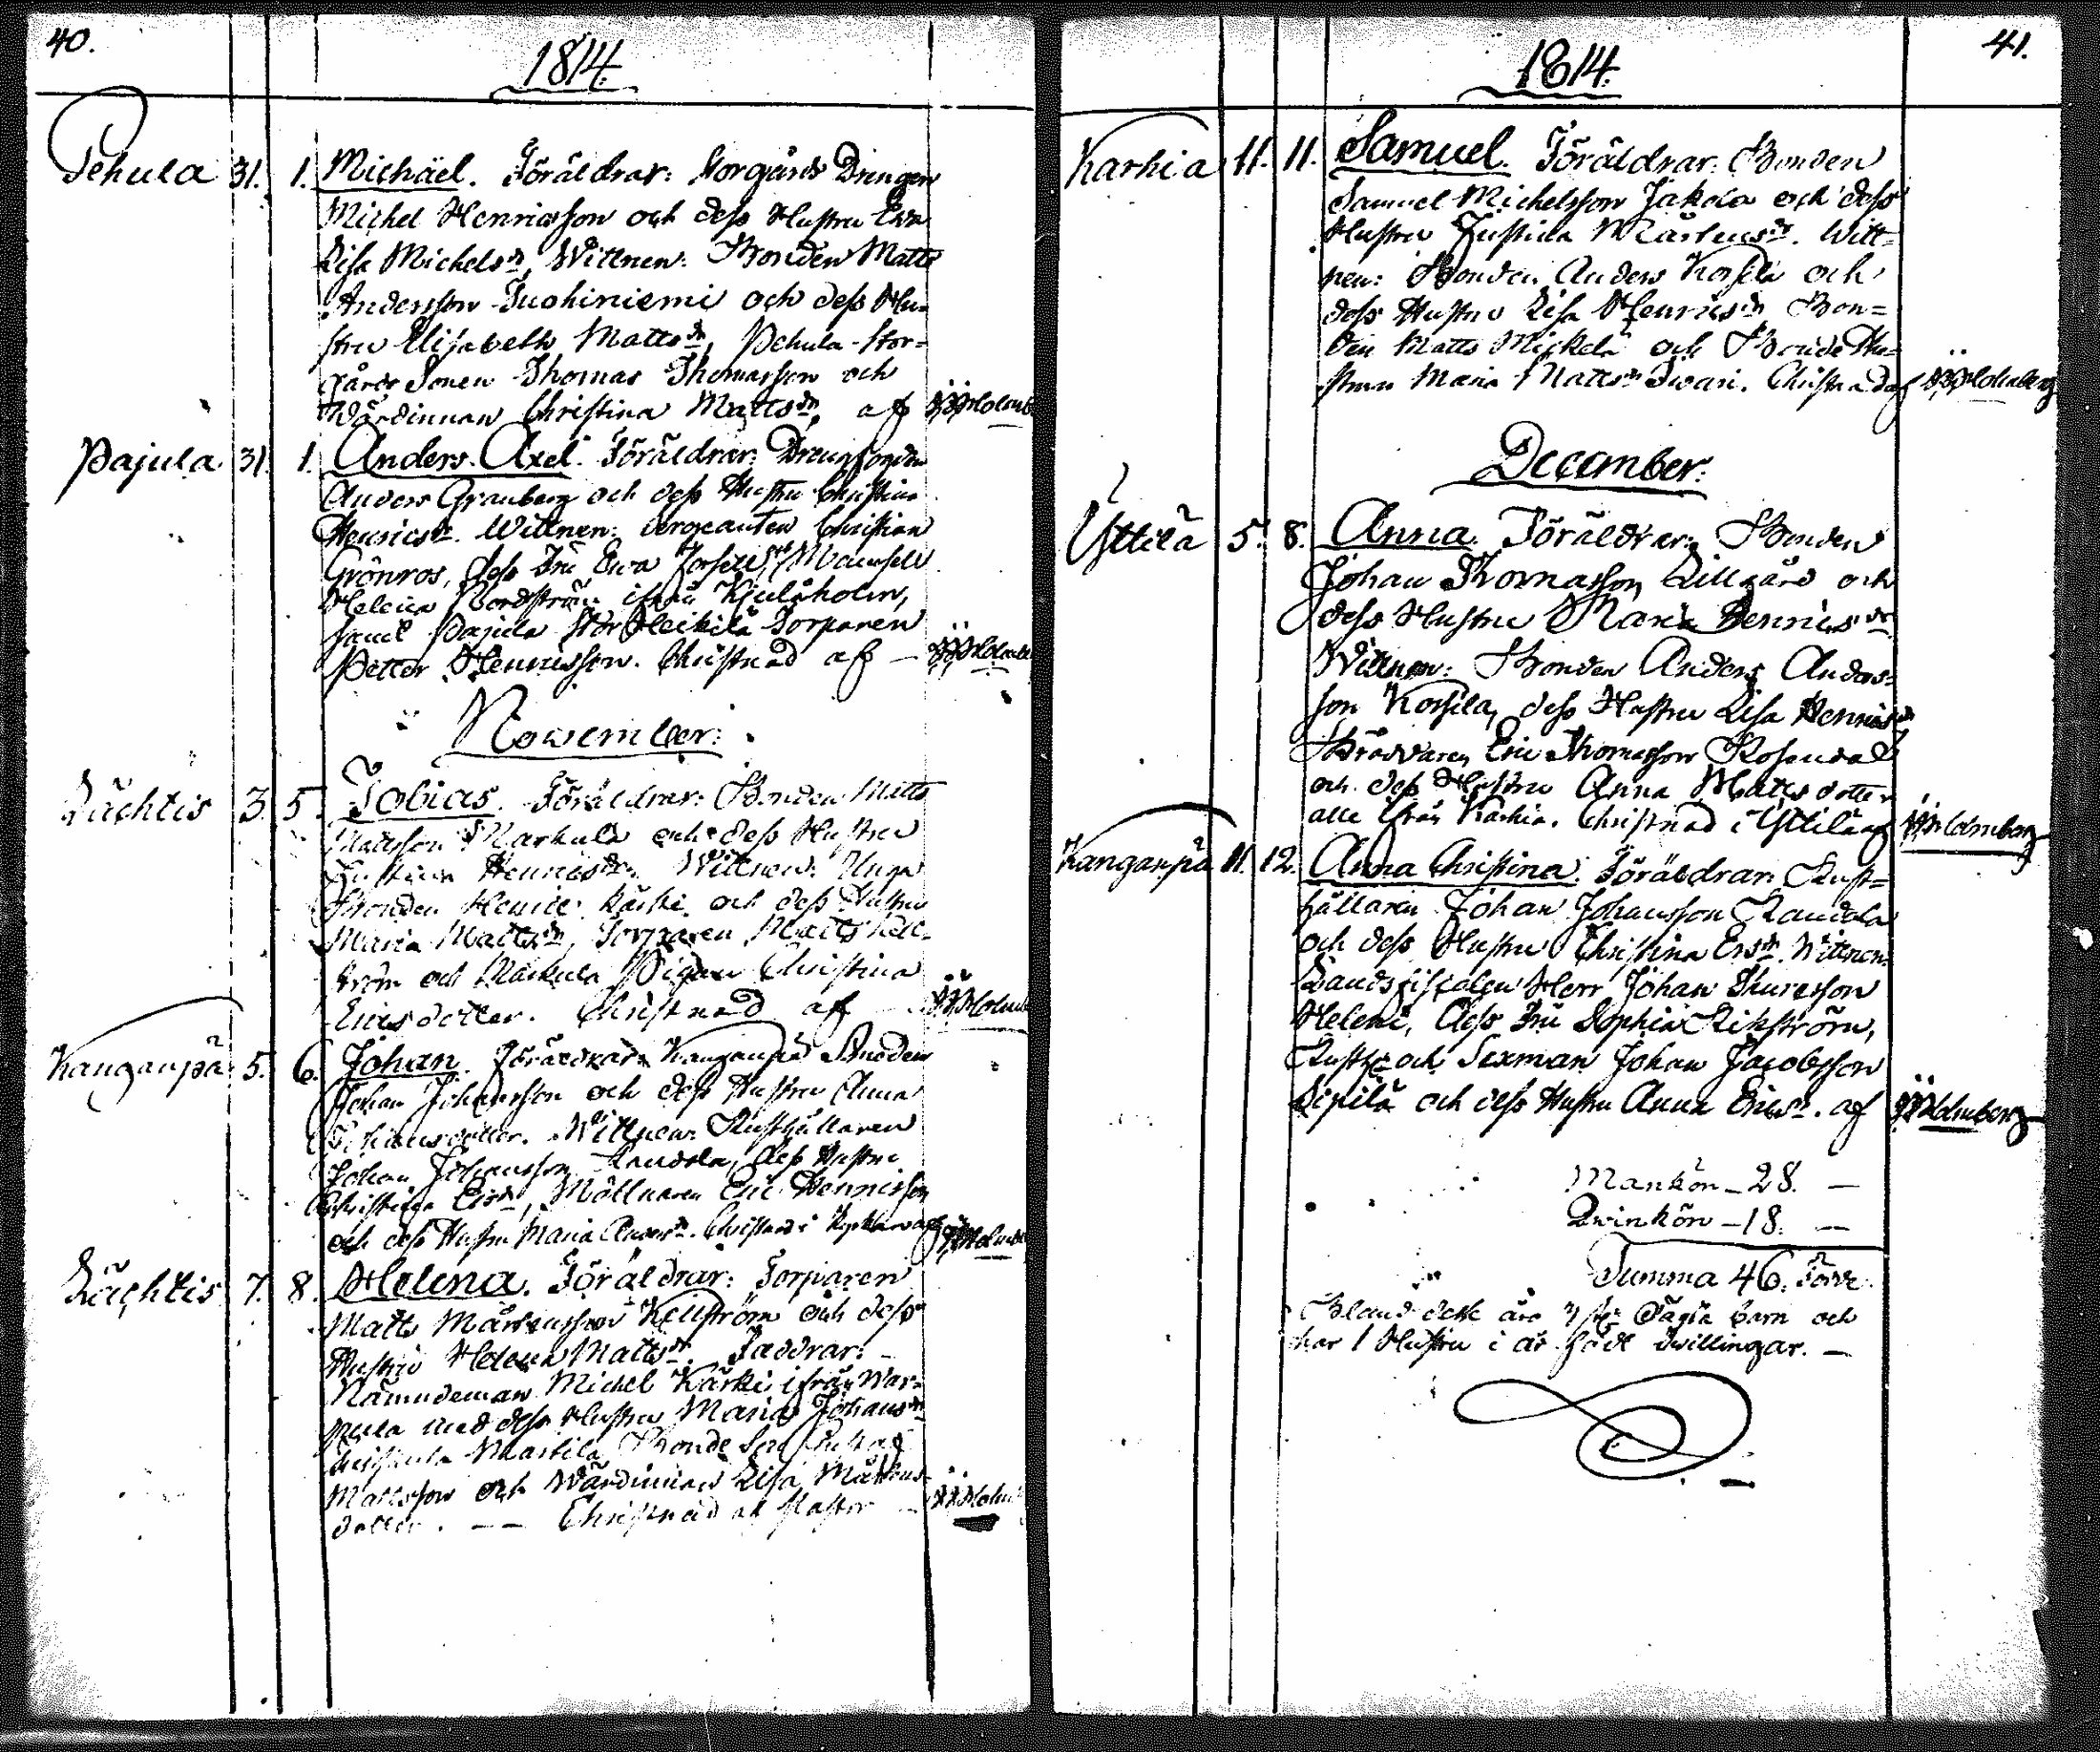 40.
1814.
Pehula 31. 1. Michäel. Föräldrar: Storgårds Drengen
Michel Henricsson och dess Hustru Ewa
Lisa Michelsdr, Wittnen: Bonden Matts
Andersson Suohiniemi och dess Hu-
stru Elisabeth Mattsdr, Pehula-Stor-
gårds Sonen Thomas Thomasson och
Wärdinnan Christina Mattsdr, af
Pajula 31. 1. Anders Axel. Föräldrar:
Anders Granberg och dess Hustru Christina
Henricsdr. Wittnen: Sergeanten Christian
Grönros, dess Fru Ewa Mamsell
Helena Nordström ifrån Kjuloholm,
samt Pajula Stor Heikilä Torparen
Petter Henricsson. Christnad af —
November:
Lächtis 3. 5. Tobias. Föräldrar: Bonden Matts
Mattsson Markula och dess Hustru
Justina Henricsdr. Wittnen: Unga
Bonden Henric Kärki och dess Hustru
Maria Mattsdr, Torparen Matts Kell-
ström och Markula Pigan Christina
Ericsdotter. Christnad af
Kanganpä 5. 6. Johan. Föräldrar: Kanganpä Smeden
Johan Johansson och dess Hustru Anna
Johansdotter. Wittnen: Rusthållaren
Johan Johansson Randala, dess Hustru
Christina Ersdr, Möllnaren Eric Henricsson
och dess Hustru Maria Andersdr. Christnad i Kyrkan af
Lächtis 7. 8. Helena. Föräldrar: Torparen
Matts Mårtensson Kellström och dess
Hustru Helena Mattsdr. Faddrar: —
Nämndeman Michel Kärki ifrån War-
pula med dess Hustru Maria Johansdr
Martila Bonde Son Gustaf
Mattsson och Wärdinnan Lisa Mårtens-
dotter. — — Christnad af Pastor —
41.
1814.
Karhia 11. 11. Samuel. Föräldrar: Bonden
Samuel Michelsson Jakola och dess
Hustru Justina Mårtensdr. Witt-
nen: Bonden Anders Korsila och
dess Hustru Lisa Henricsdr Bon-
den Matts Mickola och Bonde Hu-
strun Maria Mattsdr Iwari. Christnad af Holmberg
December:
Yttilä 5. 8. Anna. Föräldrar: Bonden
Johan Thomasson Lillgård och
dess Hustru Maria Henricsdr
Wittnen: Bonden Anders Anders-
son Korsila, dess Hustru Lisa Henricsdr
Eric Thomasson Rosendal
och dess Hustru Anna Matts dotter
alle ifrån Karhia. Christnad i Yttilä af Holmberg
Kanganpä 11. 12. Anna Christina. Föräldrar: Rust-
hållaren Johan Johansson Randala
och dess Hustru Christina Ersdr. Wittnen:
Landsfiscalen Herr Johan Thuresson
Heleni, dess Fru Sophia Rikström,
Rusth. och Sexman Johan Jacobsson
Sipilä och dess Hustru Anna Ericsdr. af Holmberg
Mankön — 28. —
Qwinkön — 18. —
Summa 46.
Bland desse äro 3 st. oägta barn och
har 1 Hustru i år födt twillingar. —